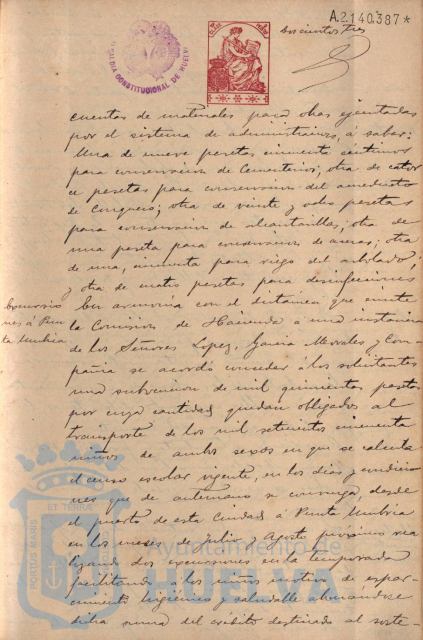 A.2.140.387*
Doscientos tres
ALCALDIA CONSTITUCIONAL DE HUELVA
cuentas de materiales para obras ejecutadas
por el sistema de administracion, á saber:
Una de nueve pesetas cincuenta céntimos
para conservacion de Cementerios; otra de cator
ce pesetas para conservacion del acueducto
de Conquero; otra de veinte y ocho pesetas
para conservacion de alcantarillas; otra de
una peseta para conservacion de aceras; otra
de una, cincuenta para riego del arbolado;
y otra de cuatro pesetas para desinfecciones
Excursio
nes á Pun
ta Umbria
En armonía con el dictamen que emite
la Comision de Hacienda á una instancia
de los Señores Lopez, Garcia Morales y Com-
pañia se acordó conceder á los solicitantes
una subvencion de mil quinientas pesetas
por cuya cantidad quedan obligados al
transporte de los mil setecientos cincuenta
niños de ambos sexos en que se calcula
el censo escolar vigente, en los dias y condicio
nes que de antemano se convenga, desde
el puerto de esta Ciudad á Punta Umbria
en los meses de Julio y Agosto próximos rea
lizando dos excursiones en la temporada
facilitando á los niños motivo de espar-
cimiento higiénico y saludable abonandose
dicha suma del crédito destinado al soste-
PORTUS MARIS ET TERRAE
Ayuntamiento de
HUELVA